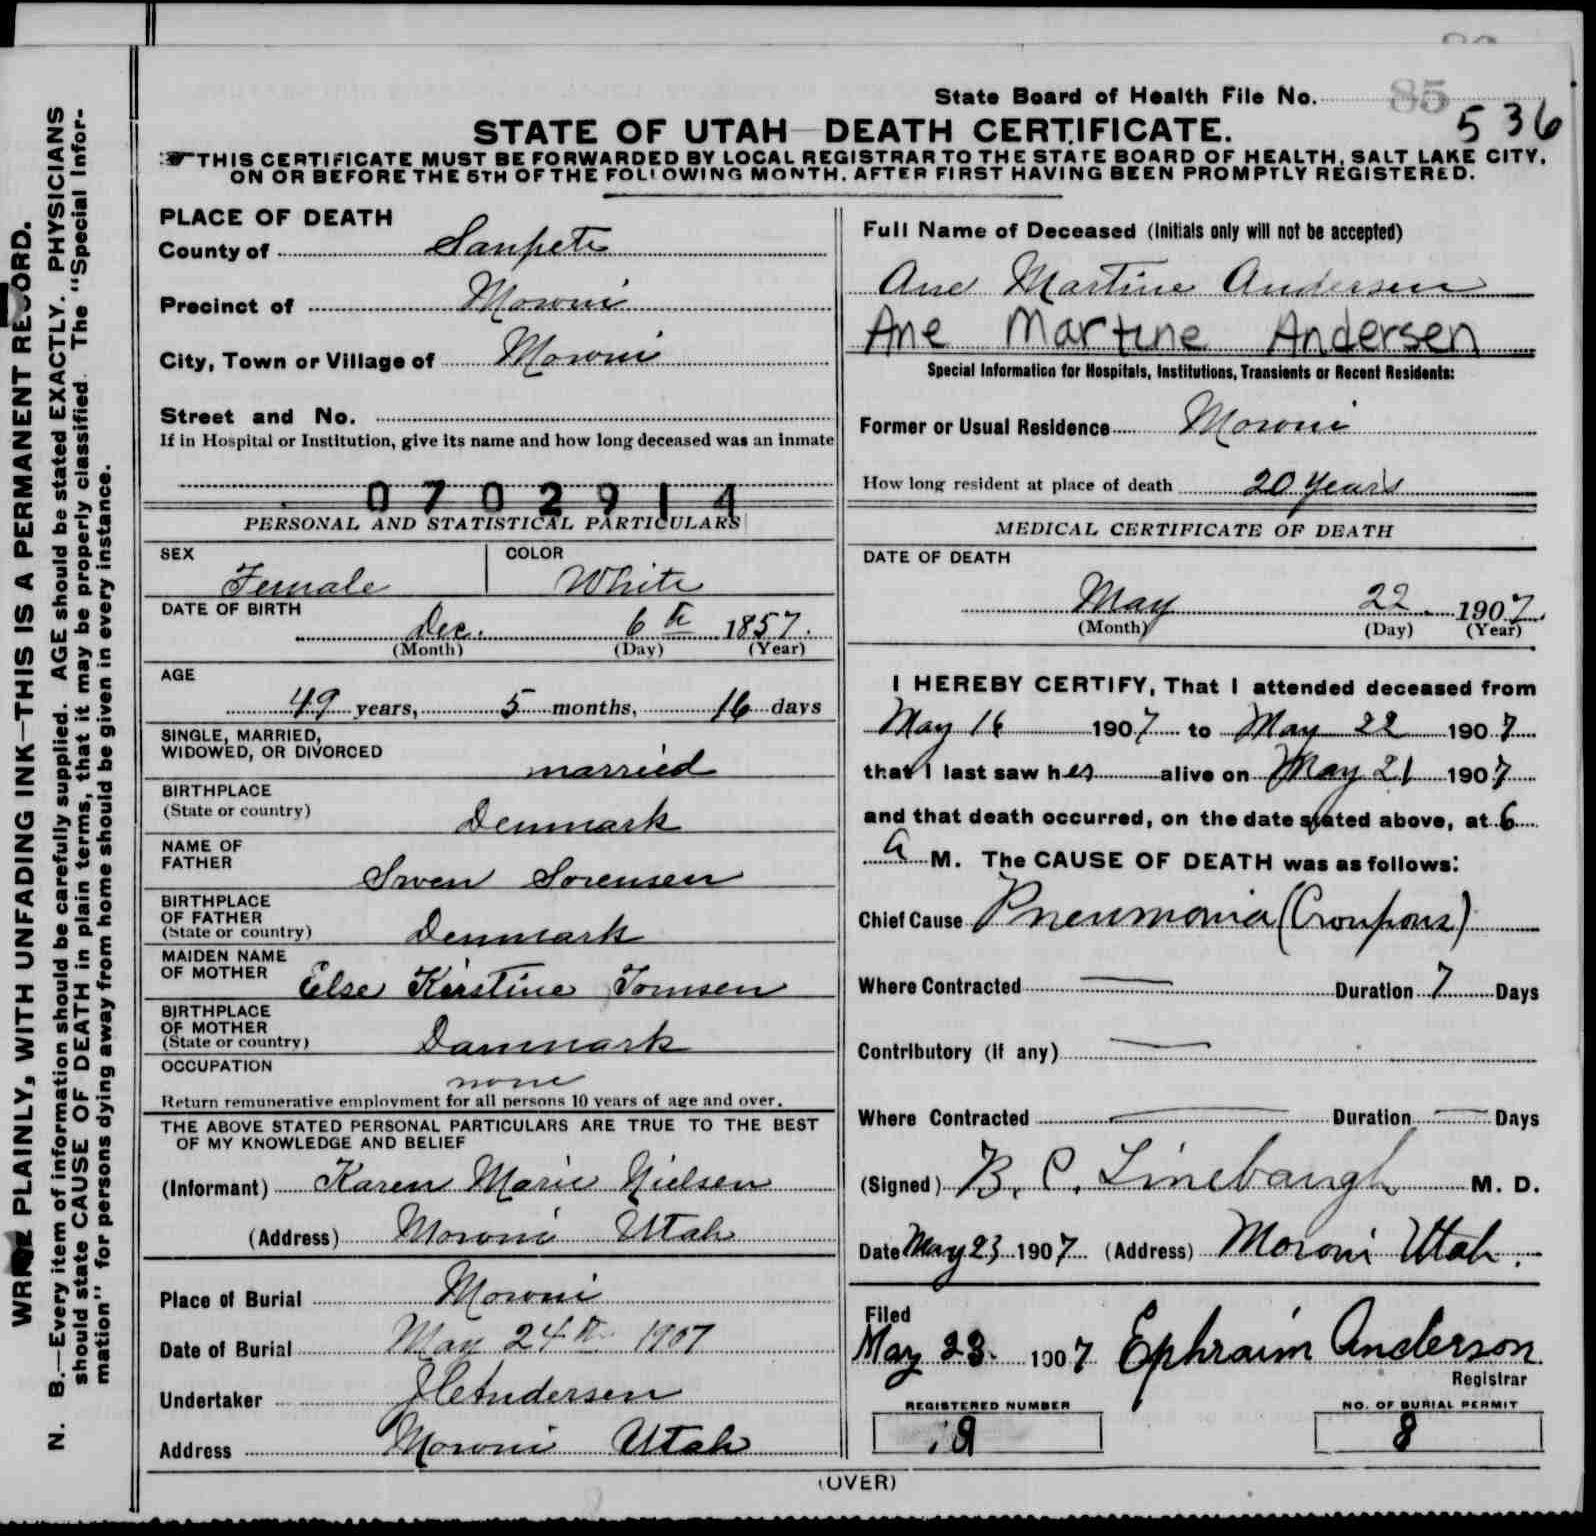 State Board of Health File No. 85
536
STATE OF UTAH—DEATH CERTIFICATE.
THIS CERTIFICATE MUST BE FORWARDED BY LOCAL REGISTRAR TO THE STATE BOARD OF HEALTH, SALT LAKE CITY,
ON OR BEFORE THE 5TH OF THE FOLLOWING MONTH, AFTER FIRST HAVING BEEN PROMPTLY REGISTERED.
WRITE PLAINLY, WITH UNFADING INK—THIS IS A PERMANENT RECORD.
N. B.—Every item of information should be carefully supplied. AGE should be stated EXACTLY. PHYSICIANS
should state CAUSE OF DEATH in plain terms, that it may be properly classified. The "Special Infor-
mation" for persons dying away from home should be given in every instance.
PLACE OF DEATH
County of Sanpete
Precinct of Moroni
City, Town or Village of Moroni
Street and No.
If in Hospital or Institution, give its name and how long deceased was an inmate
0702914
PERSONAL AND STATISTICAL PARTICULARS
SEX Female COLOR White
DATE OF BIRTH
Dec. 6th 1857.
(Month) (Day) (Year)
AGE
49 years, 5 months, 16 days
SINGLE, MARRIED,
WIDOWED, OR DIVORCED
married
BIRTHPLACE
(State or country) Denmark
NAME OF
FATHER Swen Sorensen
BIRTHPLACE
OF FATHER
(State or country) Denmark
MAIDEN NAME
OF MOTHER Else Kirstine Tomsen
BIRTHPLACE
OF MOTHER
(State or country) Danmark
OCCUPATION
none
Return remunerative employment for all persons 10 years of age and over.
THE ABOVE STATED PERSONAL PARTICULARS ARE TRUE TO THE BEST
OF MY KNOWLEDGE AND BELIEF
(Informant) Karen Marie Nielsen
(Address) Moroni Utah
Place of Burial Moroni
Date of Burial May 24th 1907
Undertaker J C Andersen
Address Moroni Utah
Full Name of Deceased (Initials only will not be accepted)
Ane Martine Andersen
Ane Martine Andersen
Special Information for Hospitals, Institutions, Transients or Recent Residents:
Former or Usual Residence Moroni
How long resident at place of death 20 years
MEDICAL CERTIFICATE OF DEATH
DATE OF DEATH
May 22 1907
(Month) (Day) (Year)
I HEREBY CERTIFY, That I attended deceased from
May 16 1907 to May 22 1907
that I last saw her alive on May 21 1907
and that death occurred, on the date stated above, at 6
a M. The CAUSE OF DEATH was as follows:
Chief Cause Pneumonia (Croupous)
Where Contracted — Duration 7 Days
Contributory (if any) —
Where Contracted — Duration — Days
(Signed) B. C. Linebaugh M. D.
Date May 23 1907 (Address) Moroni Utah.
Filed
May 23. 1907 Ephraim Anderson
Registrar
REGISTERED NUMBER
NO. OF BURIAL PERMIT
8
(OVER)